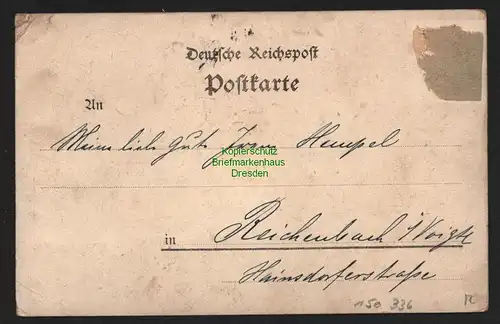 Deutsche Reichspost
Postkarte
An
Meine liebe gute Frau Hempel
Kopierschutz
Briefmarkenhaus
Dresden
in Reichenbach i/Voigtl
Hainsdorferstraße
150 336